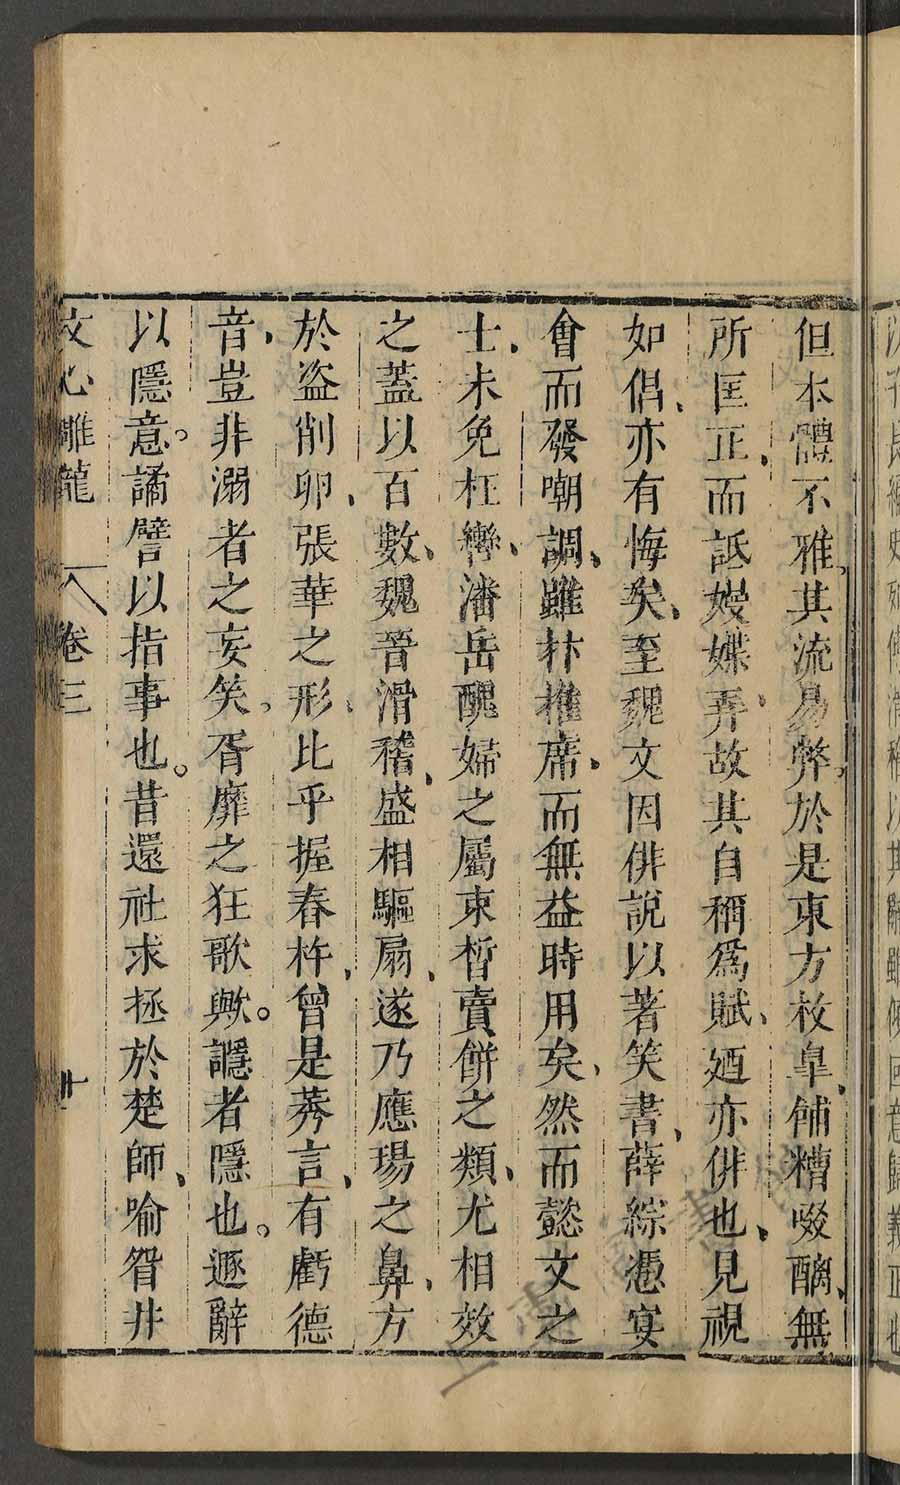 但本體不雅其流易弊於是東方枚皐餔糟啜醨無
所匡正而詆嫚媟弄故其自稱爲賦廼亦俳也見視
如倡亦有悔矣至魏文因俳說以著笑書薛綜憑宴
會而發嘲調雖抃推席而無益時用矣然而懿文之
士未免枉轡潘岳醜婦之屬束晳賣餅之類尤相效
之蓋以百數魏晉滑稽盛相驅扇遂乃應瑒之鼻方
於盜削卵張華之形比乎握舂杵曾是莠言有虧德
音豈非溺者之妄笑胥靡之狂歌歟讔者隱也遯辭
以隱意譎譬以指事也昔還社求拯於楚師喻眢井
文心雕龍 卷三 十